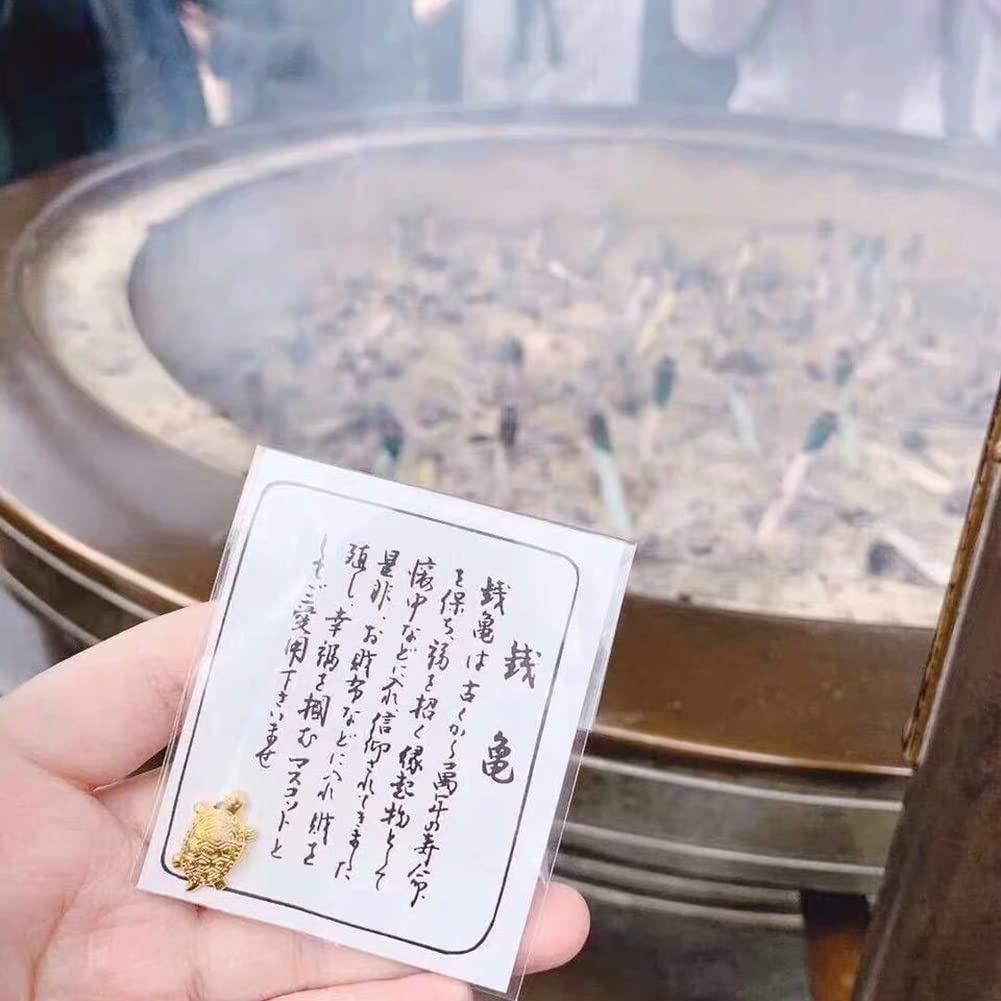 銭亀
銭亀は古くから萬年の寿命
を保ち福を招く縁起物として
懐中などに入れ信仰されてきました
是非、お財布などに入れ財を
殖し、幸福を掴むマスコットと
してご愛用下さいませ